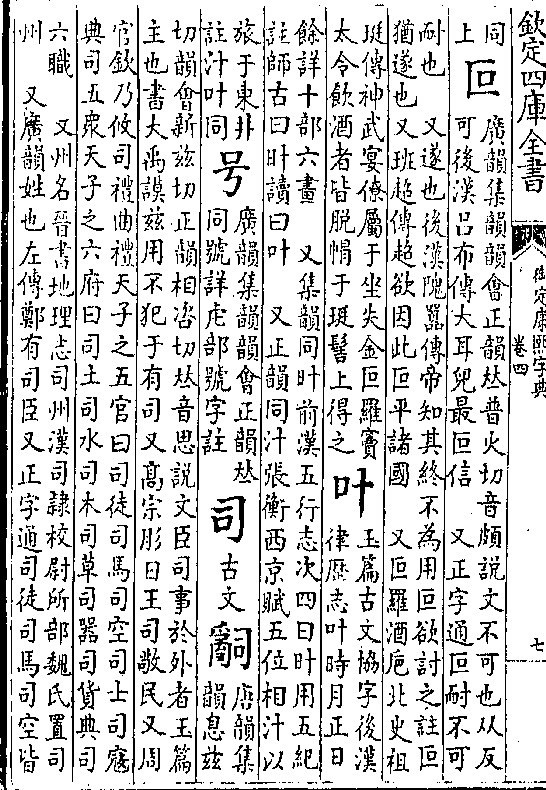 欽定四庫全書
御定康熙字典
卷四
七
同
上
叵
廣韻集韻韻會正韻𠀤普火切音頗說文不可也从反
可後漢呂布傳大耳兒最叵信 又正字通叵耐不可
耐也 又遂也後漢隗囂傳帝知其終不為用叵欲討之註叵
猶遂也 又班超傳超欲因此叵平諸國 又叵羅酒巵北史祖
珽傳神武宴僚屬于坐失金叵羅竇
太令飲酒者皆脫帽于珽髻上得之
叶
玉篇古文協字後漢
律歷志叶時月正日
餘詳十部六畫 又集韻同旪前漢五行志次四曰旪用五紀
註師古曰旪讀曰叶 又正韻同汁張衡西京賦五位相汁以
旅于東井
註汁叶同
号
廣韻集韻韻會正韻𠀤
同號詳虍部號字註
司
古文
𤔲
唐韻集
韻息茲
切韻會新茲切正韻相咨切𠀤音思說文臣司事於外者玉篇
主也書大禹謨茲用不犯于有司又高宗肜日王司敬民又周
官欽乃攸司禮曲禮天子之五官曰司徒司馬司空司士司寇
典司五衆天子之六府曰司土司水司木司草司器司貨典司
六職 又州名晉書地理志司州漢司隸校尉所部魏氏置司
州 又廣韻姓也左傳鄭有司臣又正字通司徒司馬司空皆